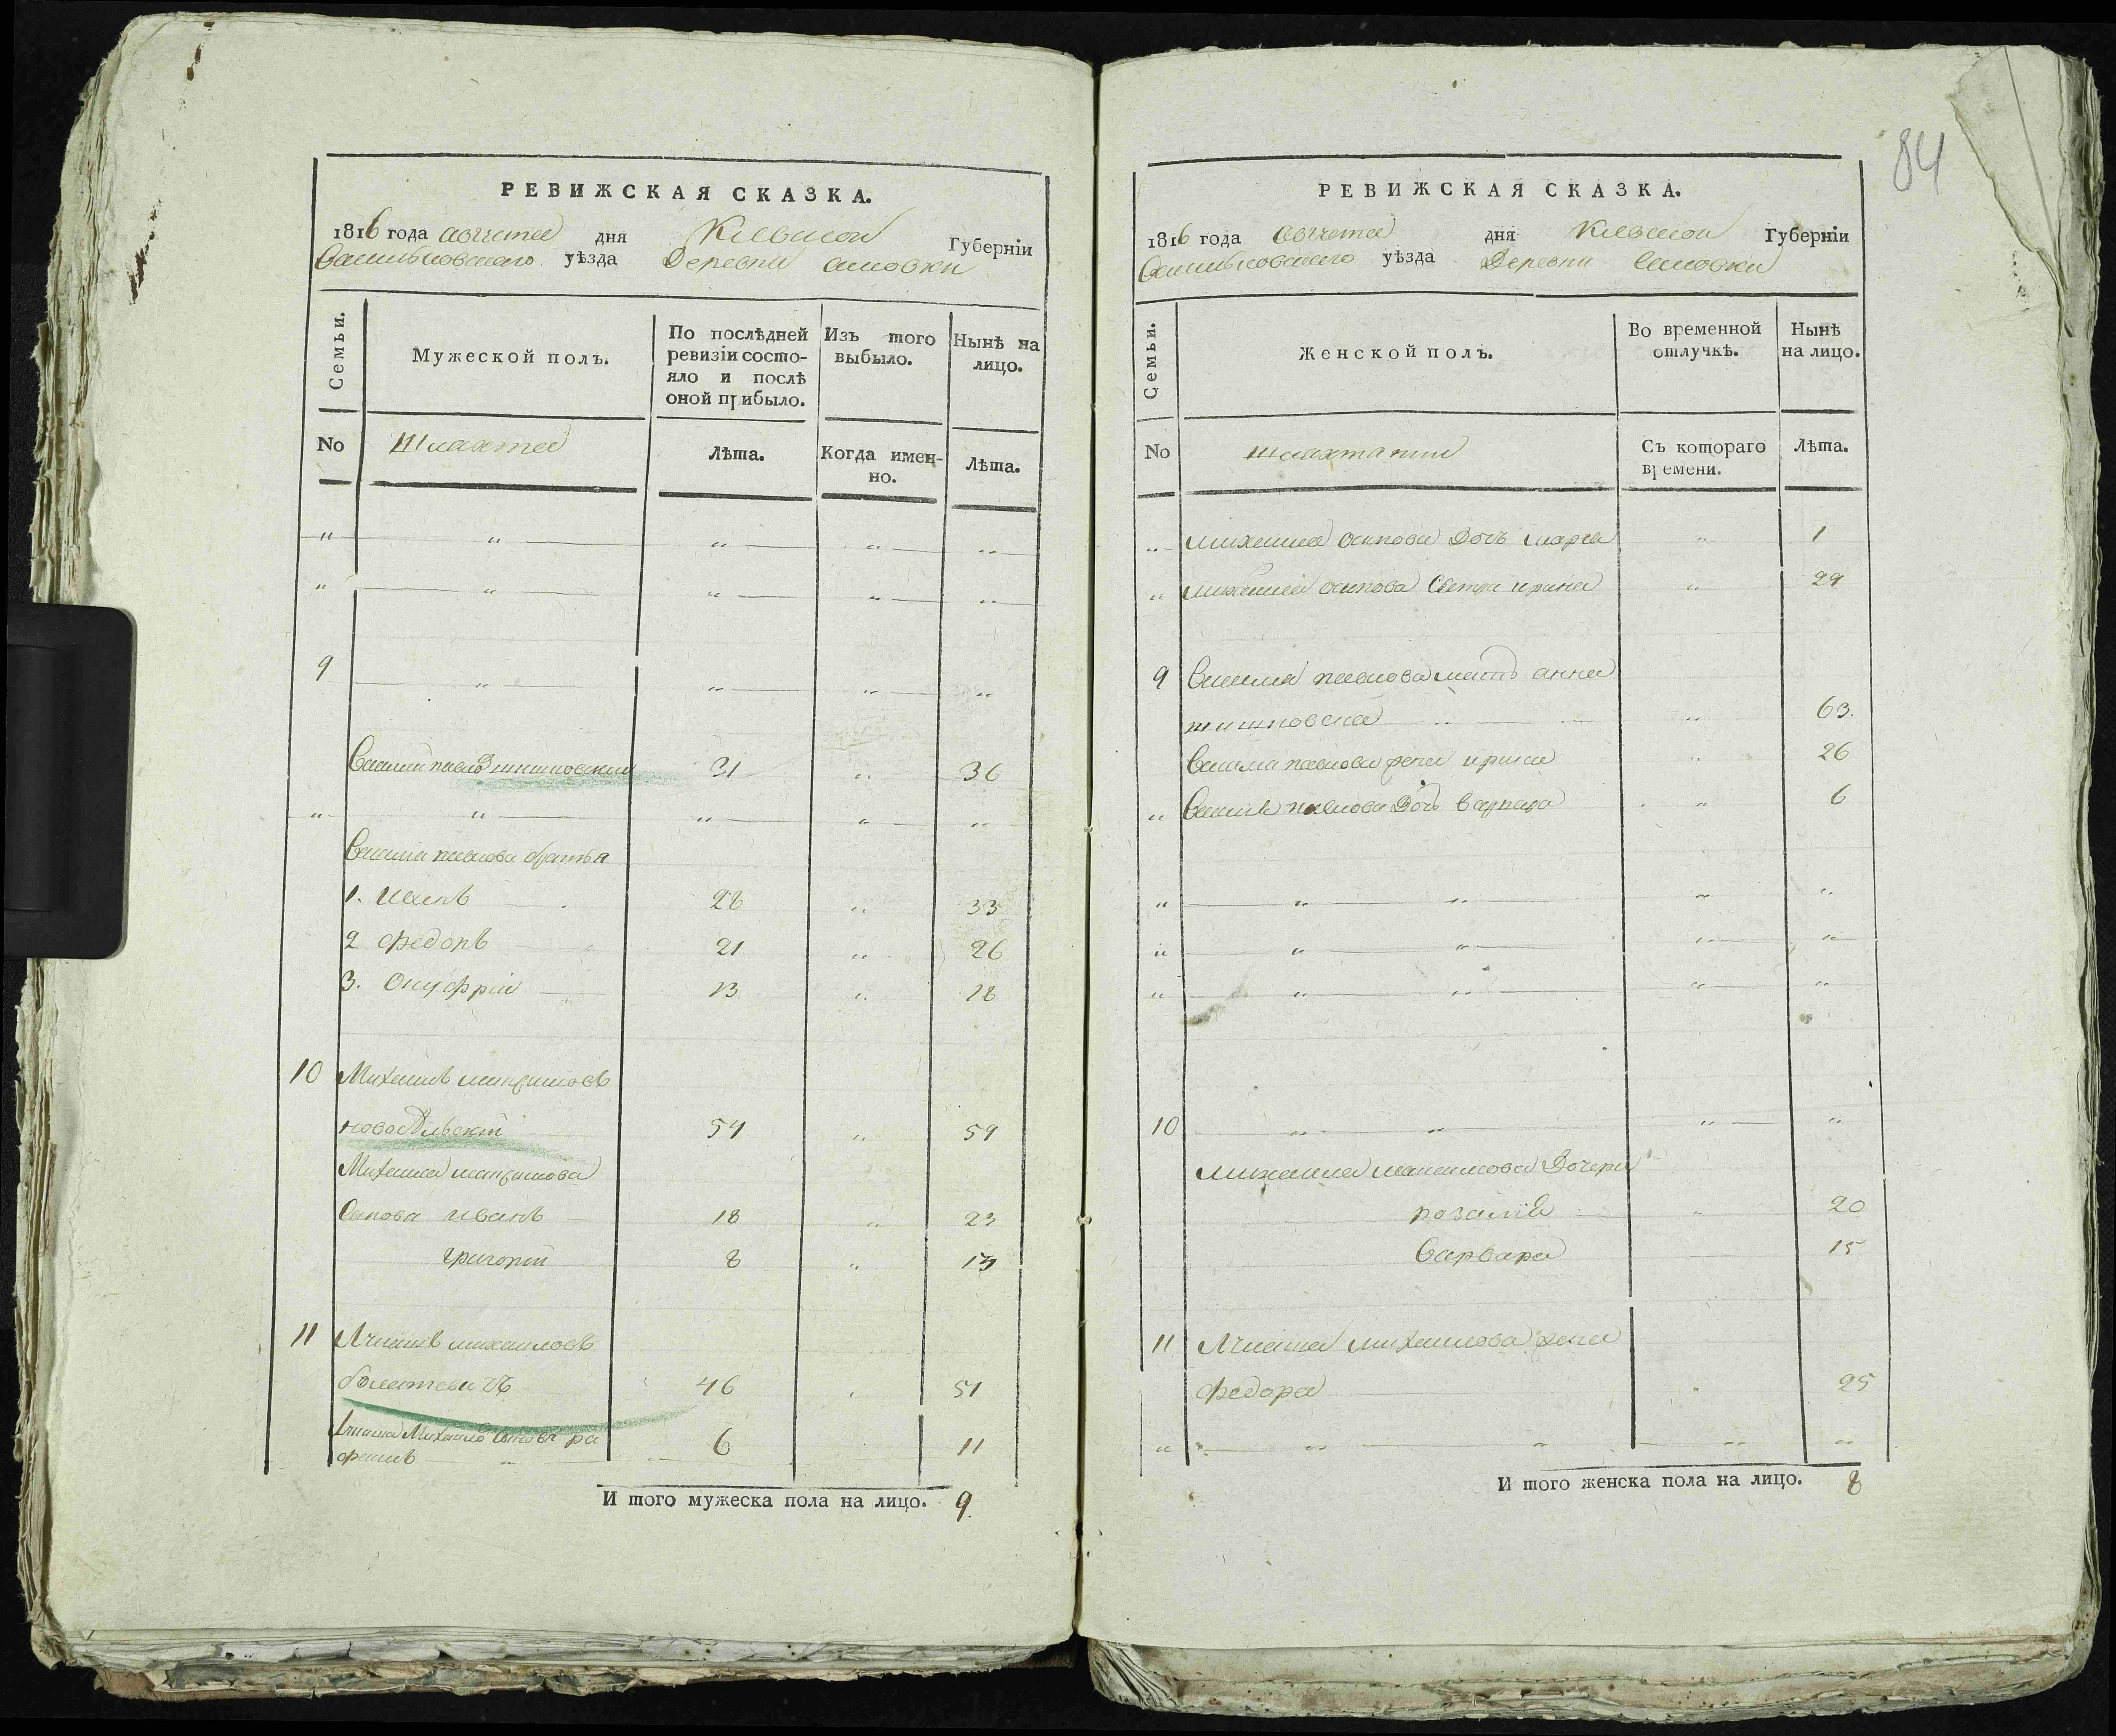 РЕВИЖСКАЯ СКАЗКА.
1816 года августа дня Киевской Губернїи
Васильковскаго уѣзда Деревни
Семьи. Мужеской полъ. По послѣдней ревизїи состояло и послѣ оной прибыло. Изъ того выбыло. Нынѣ на лицо.
No Шляхта Лѣта. Когда именно. Лѣта.
" " " " "
" " " " "
9 " " " "
Василий Павлов 31 " 36
" " " " "
Василія Павлова братья
1. Иванъ 28 " 33
2 Федоръ 21 " 26
3. Онуфрій 13 " 18
10 Михаилъ
новосѣльскій 54 " 59
Михаила
Сынова Иванъ 18 " 23
Григорій 8 " 13
11 михаиловъ
46 " 51
Михаило Сынъ ра
фаилъ 6 11
И того мужеска пола на лицо. 9.
84
РЕВИЖСКАЯ СКАЗКА.
1816 года августа дня Киевской Губернїи
Васильковскаго уѣзда Деревни
Семьи. Женской полъ. Во временной отлучкѣ. Нынѣ на лицо.
No шляхтянки Съ котораго времени. Лѣта.
" михаила осипова Дочь марѳа " 1
" михаила осипова Сестра ирина " 29
9 Василия павлова мать анна
" 63.
Василія павлова жена ирина " 26
" Василія павлова Дочь варвара " 6
" " " " "
" " " " "
" " " " "
10 " " " "
михаила максимова Дочери
розалія " 20
варвара 15
11 михаилова жена
федора " 25
" " " " "
И того женска пола на лицо. 8